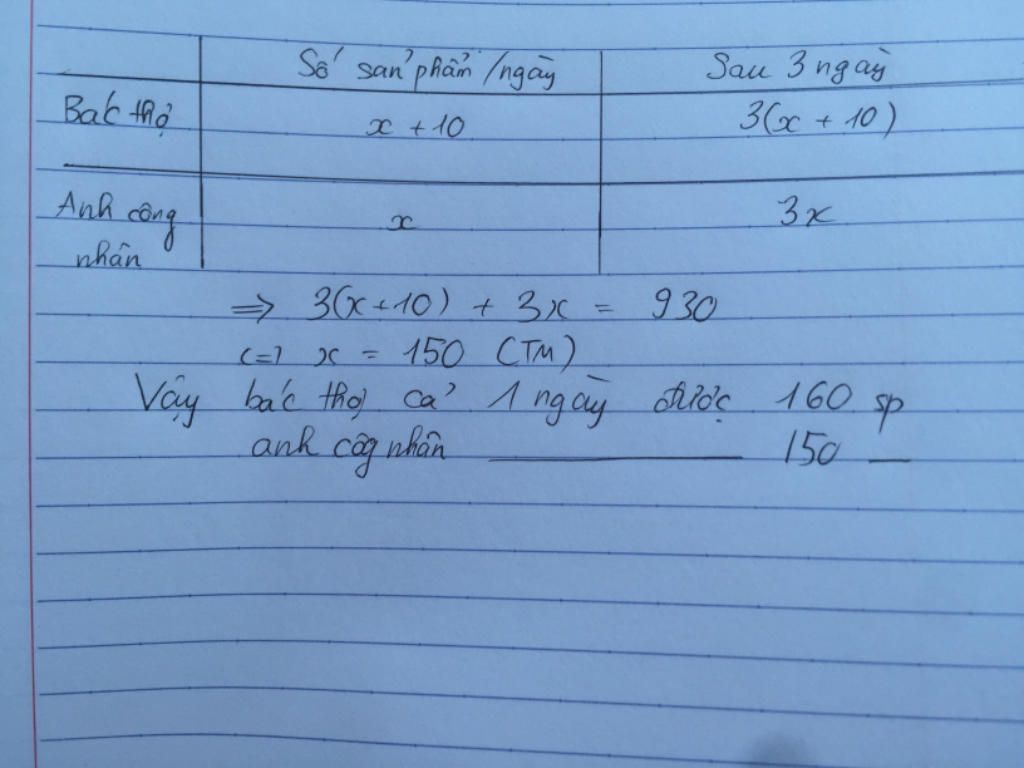 Số sản phẩm/ngày Sau 3 ngày
Bác thợ x + 10 3(x + 10)
Anh công x 3x
nhân
=> 3(x+10) + 3x = 930
<=> x = 150 (TM)
Vậy bác thợ cả 1 ngày được 160 sp
anh côg nhân ———— 150 —